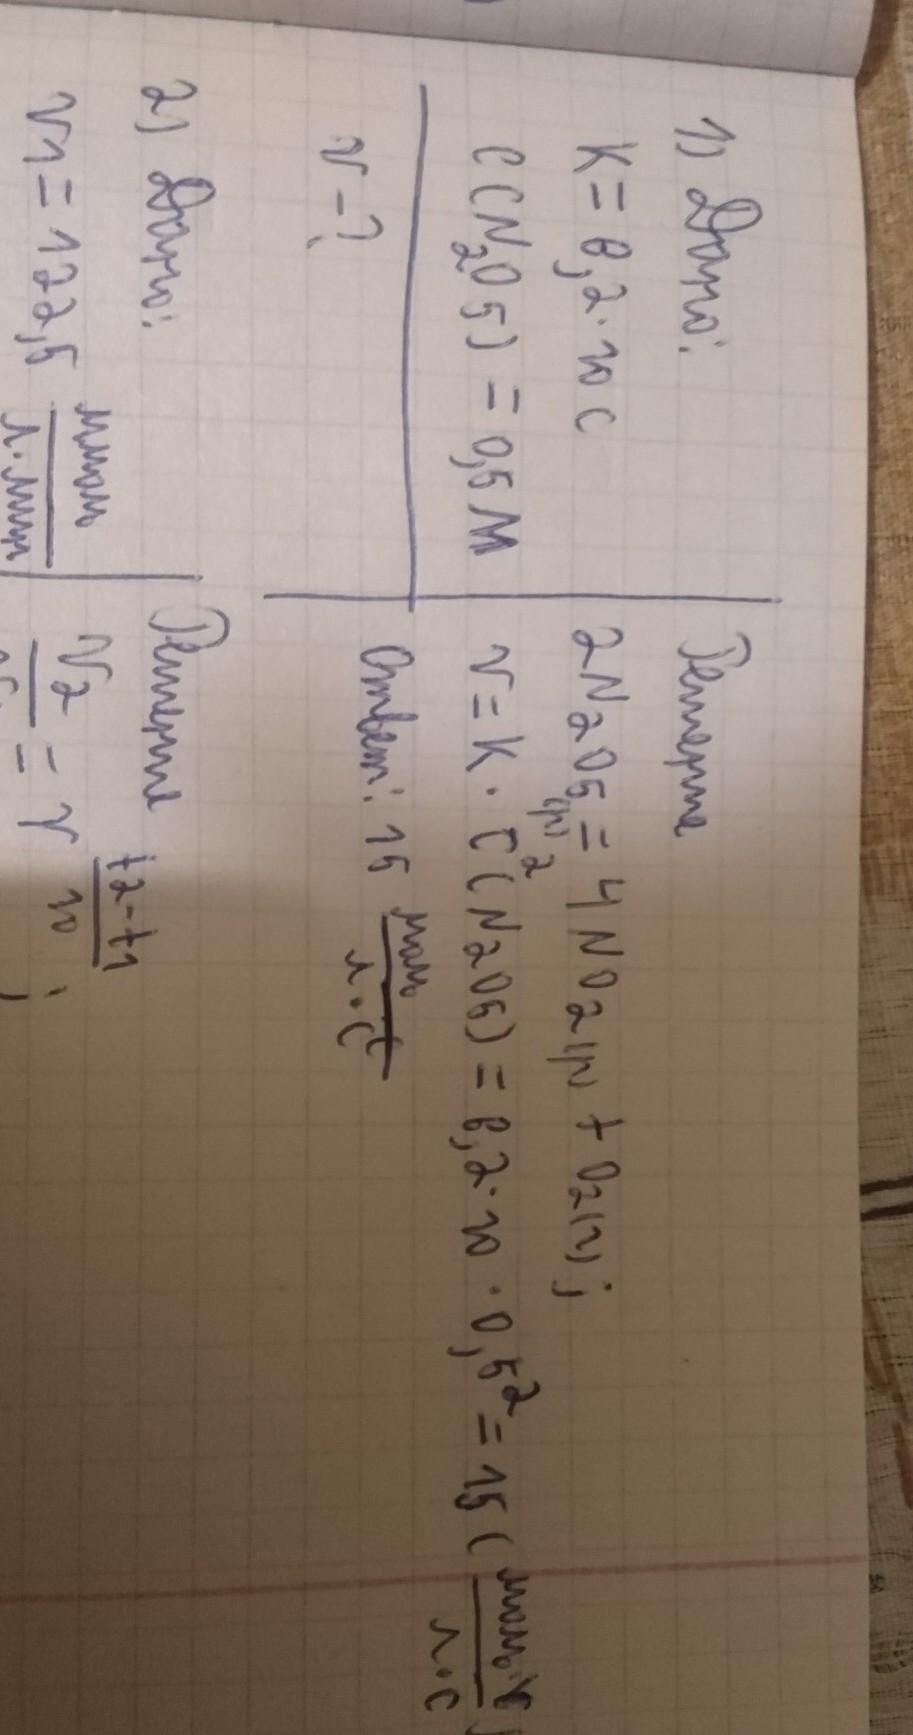 1) Дано:
K = 6,2·10 c
C(N2O5) = 0,5 M
v - ?
Решение
2N2O5(г) = 4NO2(г) + O2(г);
v = K · C²(N2O5) = 6,2·10 · 0,5² = 15 (моль/л·с)
Ответ: 15 моль/л·с
2) Дано:
v1 = 122,5 ммоль/л·мин
Решение
v2 = γ t2-t1/10;